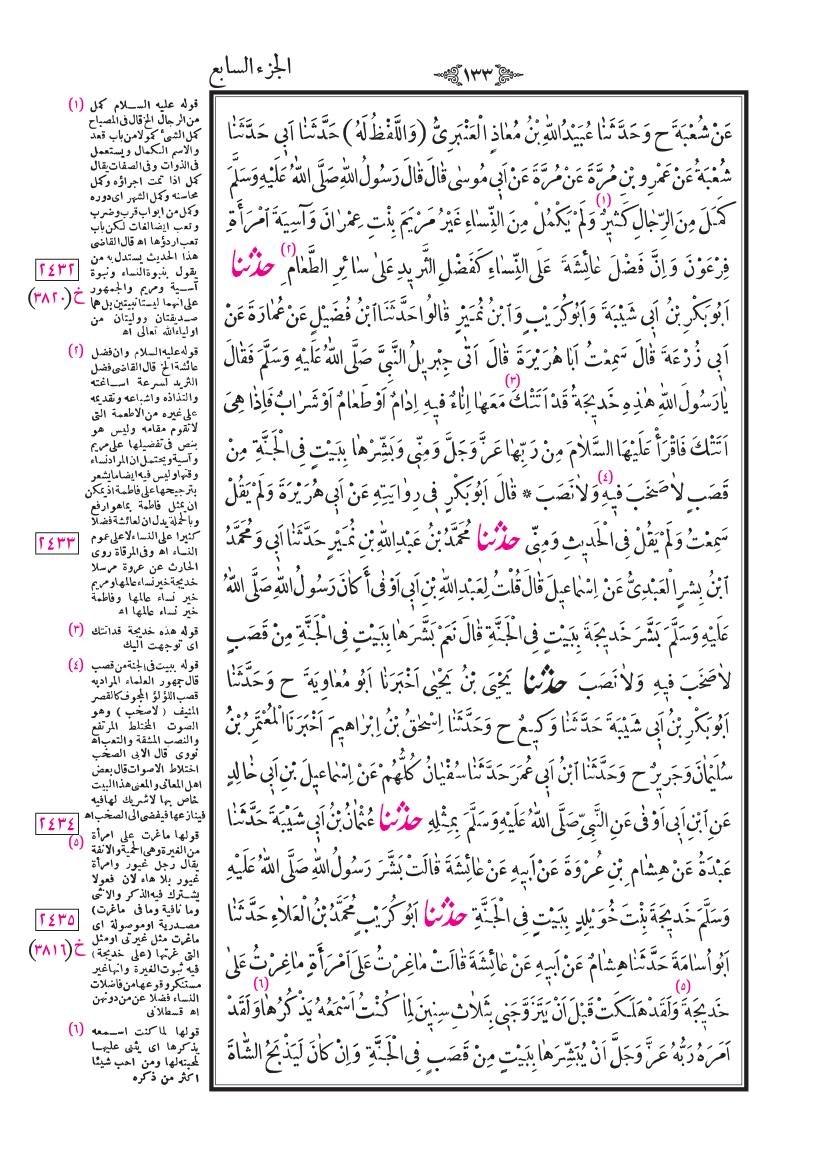 الجزء السابع
١٣٣
عَنْ شُعْبَةَ ح وَحَدَّثَنَا عُبَيْدُ اللّٰهِ بْنُ مُعَاذٍ الْعَنْبَرِىُّ (وَاللَّفْظُ لَهُ) حَدَّثَنَا اَبِى حَدَّثَنَا
شُعْبَةُ عَنْ عَمْرِو بْنِ مُرَّةَ عَنْ مُرَّةَ عَنْ اَبِى مُوسٰى قَالَ قَالَ رَسُولُ اللّٰهِ صَلَّى اللّٰهُ عَلَيْهِ وَسَلَّمَ
كَمَلَ مِنَ الرِّجَالِ كَثِيرٌ (١) وَلَمْ يَكْمُلْ مِنَ النِّسَاءِ غَيْرُ مَرْيَمَ بِنْتِ عِمْرَانَ وَآسِيَةَ امْرَأَةِ
فِرْعَوْنَ وَاِنَّ فَضْلَ عَائِشَةَ عَلَى النِّسَاءِ كَفَضْلِ الثَّرِيدِ عَلٰى سَائِرِ الطَّعَامِ (٢) حَدَّثَنَا
اَبُو بَكْرِ بْنُ اَبِى شَيْبَةَ وَاَبُو كُرَيْبٍ وَابْنُ نُمَيْرٍ قَالُوا حَدَّثَنَا ابْنُ فُضَيْلٍ عَنْ عُمَارَةَ عَنْ
اَبِى زُرْعَةَ قَالَ سَمِعْتُ اَبَا هُرَيْرَةَ قَالَ اَتٰى جِبْرِيلُ النَّبِىَّ صَلَّى اللّٰهُ عَلَيْهِ وَسَلَّمَ فَقَالَ
يَا رَسُولَ اللّٰهِ هٰذِهِ خَدِيجَةُ قَدْ اَتَتْكَ (٣) مَعَهَا اِنَاءٌ فِيهِ اِدَامٌ اَوْ طَعَامٌ اَوْ شَرَابٌ فَاِذَا هِىَ
اَتَتْكَ فَاقْرَأْ عَلَيْهَا السَّلَامَ مِنْ رَبِّهَا عَزَّ وَجَلَّ وَمِنِّى وَبَشِّرْهَا بِبَيْتٍ فِى الْجَنَّةِ مِنْ
قَصَبٍ لَا صَخَبَ فِيهِ (٤) وَلَا نَصَبَ * قَالَ اَبُو بَكْرٍ فِى رِوَايَتِهِ عَنْ اَبِى هُرَيْرَةَ وَلَمْ يَقُلْ
سَمِعْتُ وَلَمْ يَقُلْ فِى الْحَدِيثِ وَمِنِّى حَدَّثَنَا مُحَمَّدُ بْنُ عَبْدِ اللّٰهِ بْنِ نُمَيْرٍ حَدَّثَنَا اَبِى وَمُحَمَّدُ
ابْنُ بِشْرٍ الْعَبْدِىُّ عَنْ اِسْمَاعِيلَ قَالَ قُلْتُ لِعَبْدِ اللّٰهِ بْنِ اَبِى اَوْفٰى أَكَانَ رَسُولُ اللّٰهِ صَلَّى اللّٰهُ
عَلَيْهِ وَسَلَّمَ بَشَّرَ خَدِيجَةَ بِبَيْتٍ فِى الْجَنَّةِ قَالَ نَعَمْ بَشَّرَهَا بِبَيْتٍ فِى الْجَنَّةِ مِنْ قَصَبٍ
لَا صَخَبَ فِيهِ وَلَا نَصَبَ حَدَّثَنَا يَحْيَى بْنُ يَحْيٰى اَخْبَرَنَا اَبُو مُعَاوِيَةَ ح وَحَدَّثَنَا
اَبُو بَكْرِ بْنُ اَبِى شَيْبَةَ حَدَّثَنَا وَكِيعٌ ح وَحَدَّثَنَا اِسْحٰقُ بْنُ اِبْرَاهِيمَ اَخْبَرَنَا الْمُعْتَمِرُ بْنُ
سُلَيْمَانَ وَجَرِيرٌ ح وَحَدَّثَنَا ابْنُ اَبِى عُمَرَ حَدَّثَنَا سُفْيَانُ كُلُّهُمْ عَنْ اِسْمَاعِيلَ بْنِ اَبِى خَالِدٍ
عَنِ ابْنِ اَبِى اَوْفٰى عَنِ النَّبِىِّ صَلَّى اللّٰهُ عَلَيْهِ وَسَلَّمَ بِمِثْلِهِ حَدَّثَنَا عُثْمَانُ بْنُ اَبِى شَيْبَةَ حَدَّثَنَا
عَبْدَةُ عَنْ هِشَامِ بْنِ عُرْوَةَ عَنْ اَبِيهِ عَنْ عَائِشَةَ قَالَتْ بَشَّرَ رَسُولُ اللّٰهِ صَلَّى اللّٰهُ عَلَيْهِ
وَسَلَّمَ خَدِيجَةَ بِنْتَ خُوَيْلِدٍ بِبَيْتٍ فِى الْجَنَّةِ حَدَّثَنَا اَبُو كُرَيْبٍ مُحَمَّدُ بْنُ الْعَلَاءِ حَدَّثَنَا
اَبُو اُسَامَةَ حَدَّثَنَا هِشَامٌ عَنْ اَبِيهِ عَنْ عَائِشَةَ قَالَتْ مَا غِرْتُ عَلَى امْرَأَةٍ مَا غِرْتُ عَلٰى
خَدِيجَةَ (٥) وَلَقَدْ هَلَكَتْ قَبْلَ اَنْ يَتَزَوَّجَنِى بِثَلَاثِ سِنِينَ لِمَا كُنْتُ اَسْمَعُهُ يَذْكُرُهَا (٦) وَلَقَدْ
اَمَرَهُ رَبُّهُ عَزَّ وَجَلَّ اَنْ يُبَشِّرَهَا بِبَيْتٍ مِنْ قَصَبٍ فِى الْجَنَّةِ وَاِنْ كَانَ لَيَذْبَحُ الشَّاةَ
(١) قوله عليه السلام كمل
من الرجال الخ قال فى المصباح
كمل الشئ كمولا من باب قعد
والاسم الكمال ويستعمل
فى الذوات وفى الصفات يقال
كمل اذا تمت اجزاؤه وكمل
محاسنه وكمل الشهر اى دوره
وكمل من ابواب قرب وضرب
وتعب ايضا لغات لكن باب
تعب اردؤها اه قال القاضى
هذا الحديث يستدل به من
يقول بنبوة النساء ونبوة
آسية ومريم والجمهور
على انهما ليستا نبيتين بل هما
صديقتان ووليتان من
اولياء الله تعالى اه
(٢) قوله عليه السلام وان فضل
عائشة الخ قال القاضى فضل
الثريد لسرعة اساغته
والتذاذه واشباعه وتقديمه
على غيره من الاطعمة التى
لا تقوم مقامه وليس هو
بنص فى تفضيلها على مريم
وآسية ويحتمل ان المراد نساء
وقتها وليس فيه ايضا ما يشعر
بترجيحها على فاطمة اذ يمكن
ان يمثل فاطمة بما هو ارفع
وبالجملة يدل ان لعائشة فضلا
كثيرا على النساء لا على عموم
النساء اه وفى المرقاة روى
الحارث عن عروة مرسلا
خديجة خير نساء عالمها ومريم
خير نساء عالمها وفاطمة
خير نساء عالمها اه
(٣) قوله هذه خديجة قد اتتك
اى توجهت اليك
(٤) قوله ببيت فى الجنة من قصب
قال جمهور العلماء المراد به
قصب اللؤلؤ المجوف كالقصر
المنيف (لا صخب) وهو
الصوت المختلط المرتفع
والنصب المشقة والتعب اه
نووى قال الابى الصخب
اختلاط الاصوات قال بعض
اهل المعانى والمعنى هذا البيت
خاص بها لا شريك لها فيه
فينازعها فيفضى الى الصخب اه
(٥) قولها ما غرت على امرأة
من الغيرة وهى الحمية والانفة
يقال رجل غيور وامرأة
غيور بلا هاء لان فعولا
يشترك فيه الذكر والانثى
وما نافية وما فى ما غرت)
مصدرية او موصولة اى
ما غرت مثل غيرتى او مثل
التى غرتها (على خديجة)
فيه ثبوت الغيرة وانها غير
مستنكر وقوعها من فاضلات
النساء فضلا عن من دونهن
اه قسطلانى
(٦) قولها لما كنت اسمعه
يذكرها اى يثنى عليها
لمحبته لها ومن احب شيئا
اكثر من ذكره
٢٤٣٢
خ (٣٨٢٠)
٢٤٣٣
٢٤٣٤
٢٤٣٥
خ (٣٨١٦)